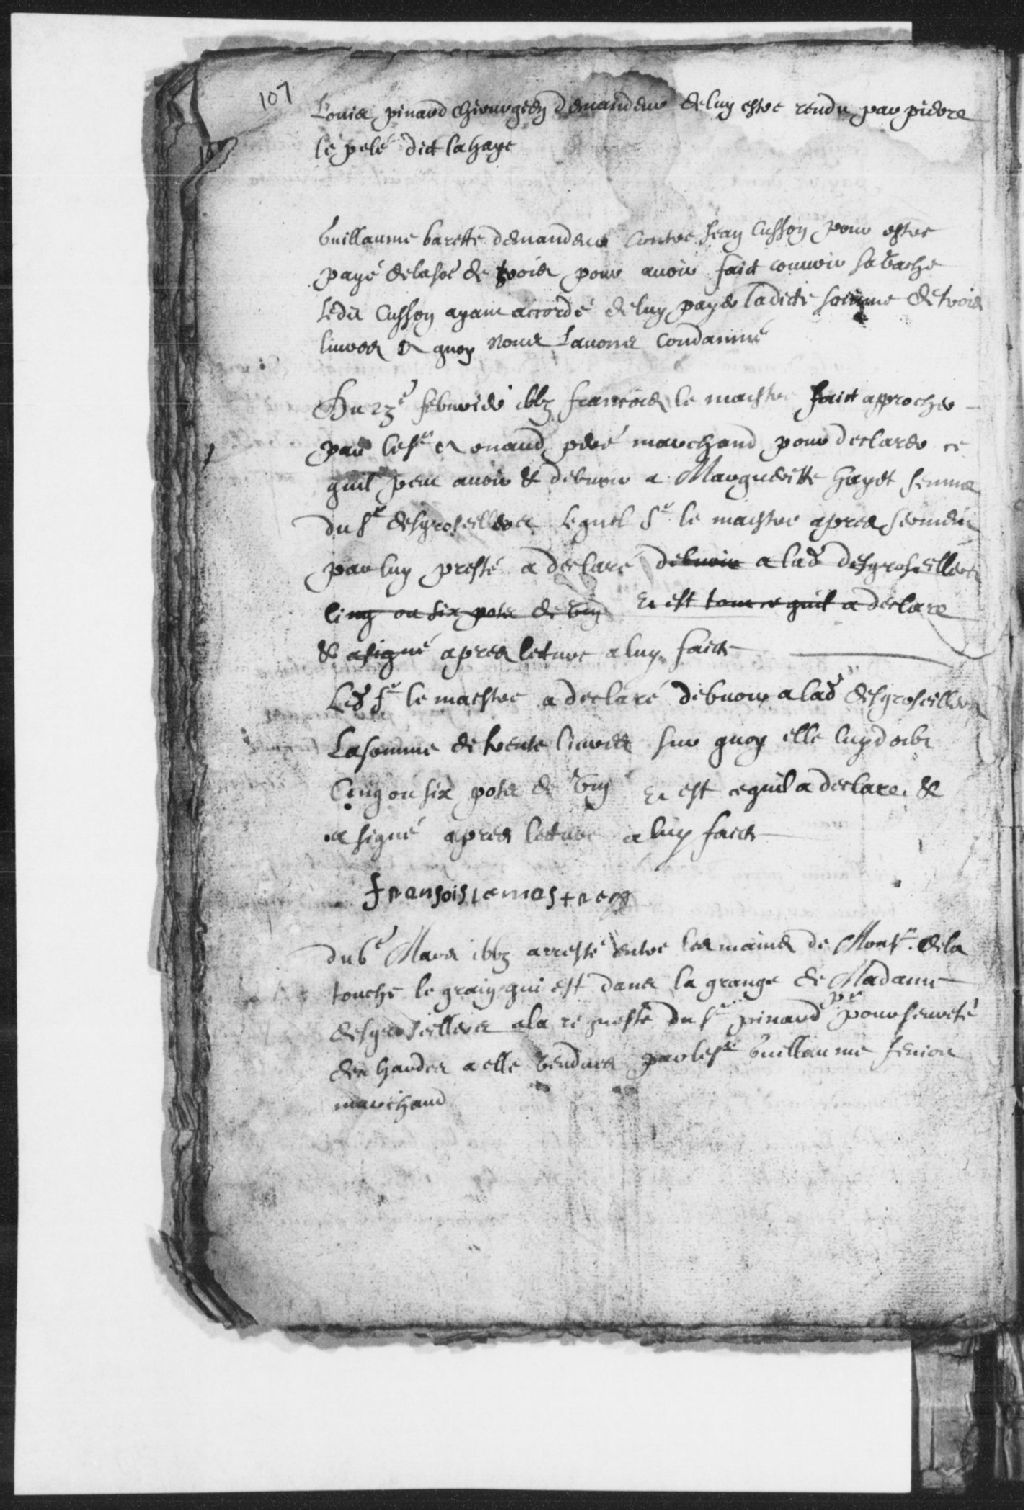 107
Louis pinard chirurgien demandeur de luy estre rendu par pierre
le pelé dict la haye
Guillaume barette demandeur contre Jean Cusson pour estre
payé de la soe de trois pour avoir faict couurir sa vache
ledit Cusson ayant accordé de luy payer ladicte somme de trois
liures a quoy nous Lauons condamné
Du 23e feburier 1663 francois le maistre faict approcher
par le sr pere marchand pour declarer ce
quil peut auoir & debuoir a Marguerite hayet femme
du sr desgroseilliers lequel sr le maistre apres serment
par luy presté a declaré debuoir a lad desgroseilliers
cinq ou six pots de vin Et est tout ce quil a declaré
& a signé apres lecture a luy faicte
Led sr le maistre a declaré debuoir a lad desgroseilliers
La somme de trente liures sur quoy elle luy doibt
Cinq ou six pots de vin Et est ce quil a declaré &
a signé apres lecture a luy faicte
fransois lemestre
du 6e Mars 1663 arresté entre les mains de Monsr de la
touche le grain qui est dans la grange de Madame
desgroseilliers a la requeste du sr pinard pr pour seureté
des hardes a elle vendues par le sr Guillaume
marchand